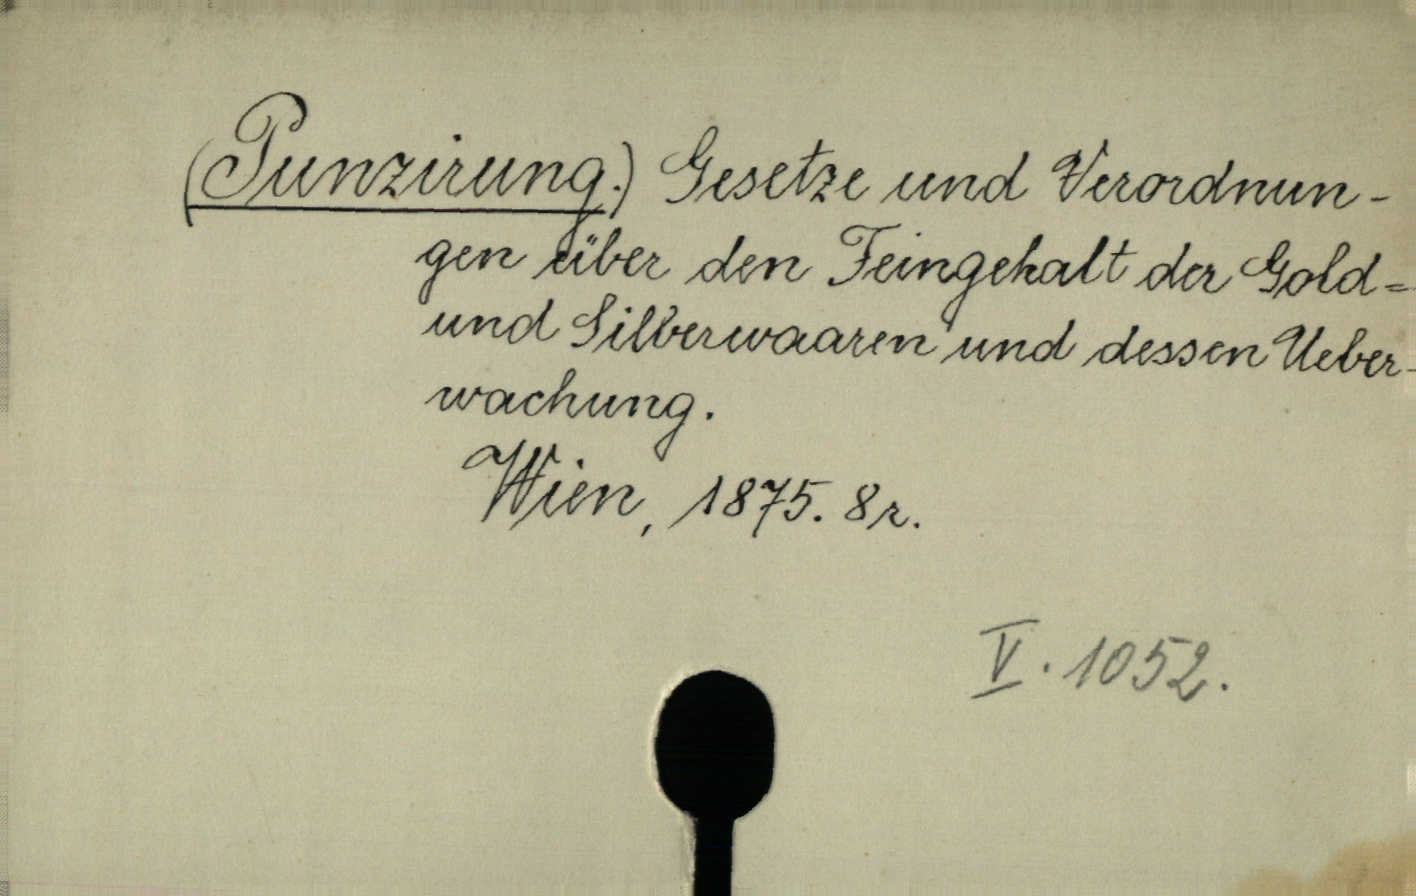 (Punzirung.) Gesetze und Verordnun-
gen über den Feingehalt der Gold=
und Silberwaaren und dessen Ueber-
wachung.
Wien, 1875. 8r.
V. 1052.